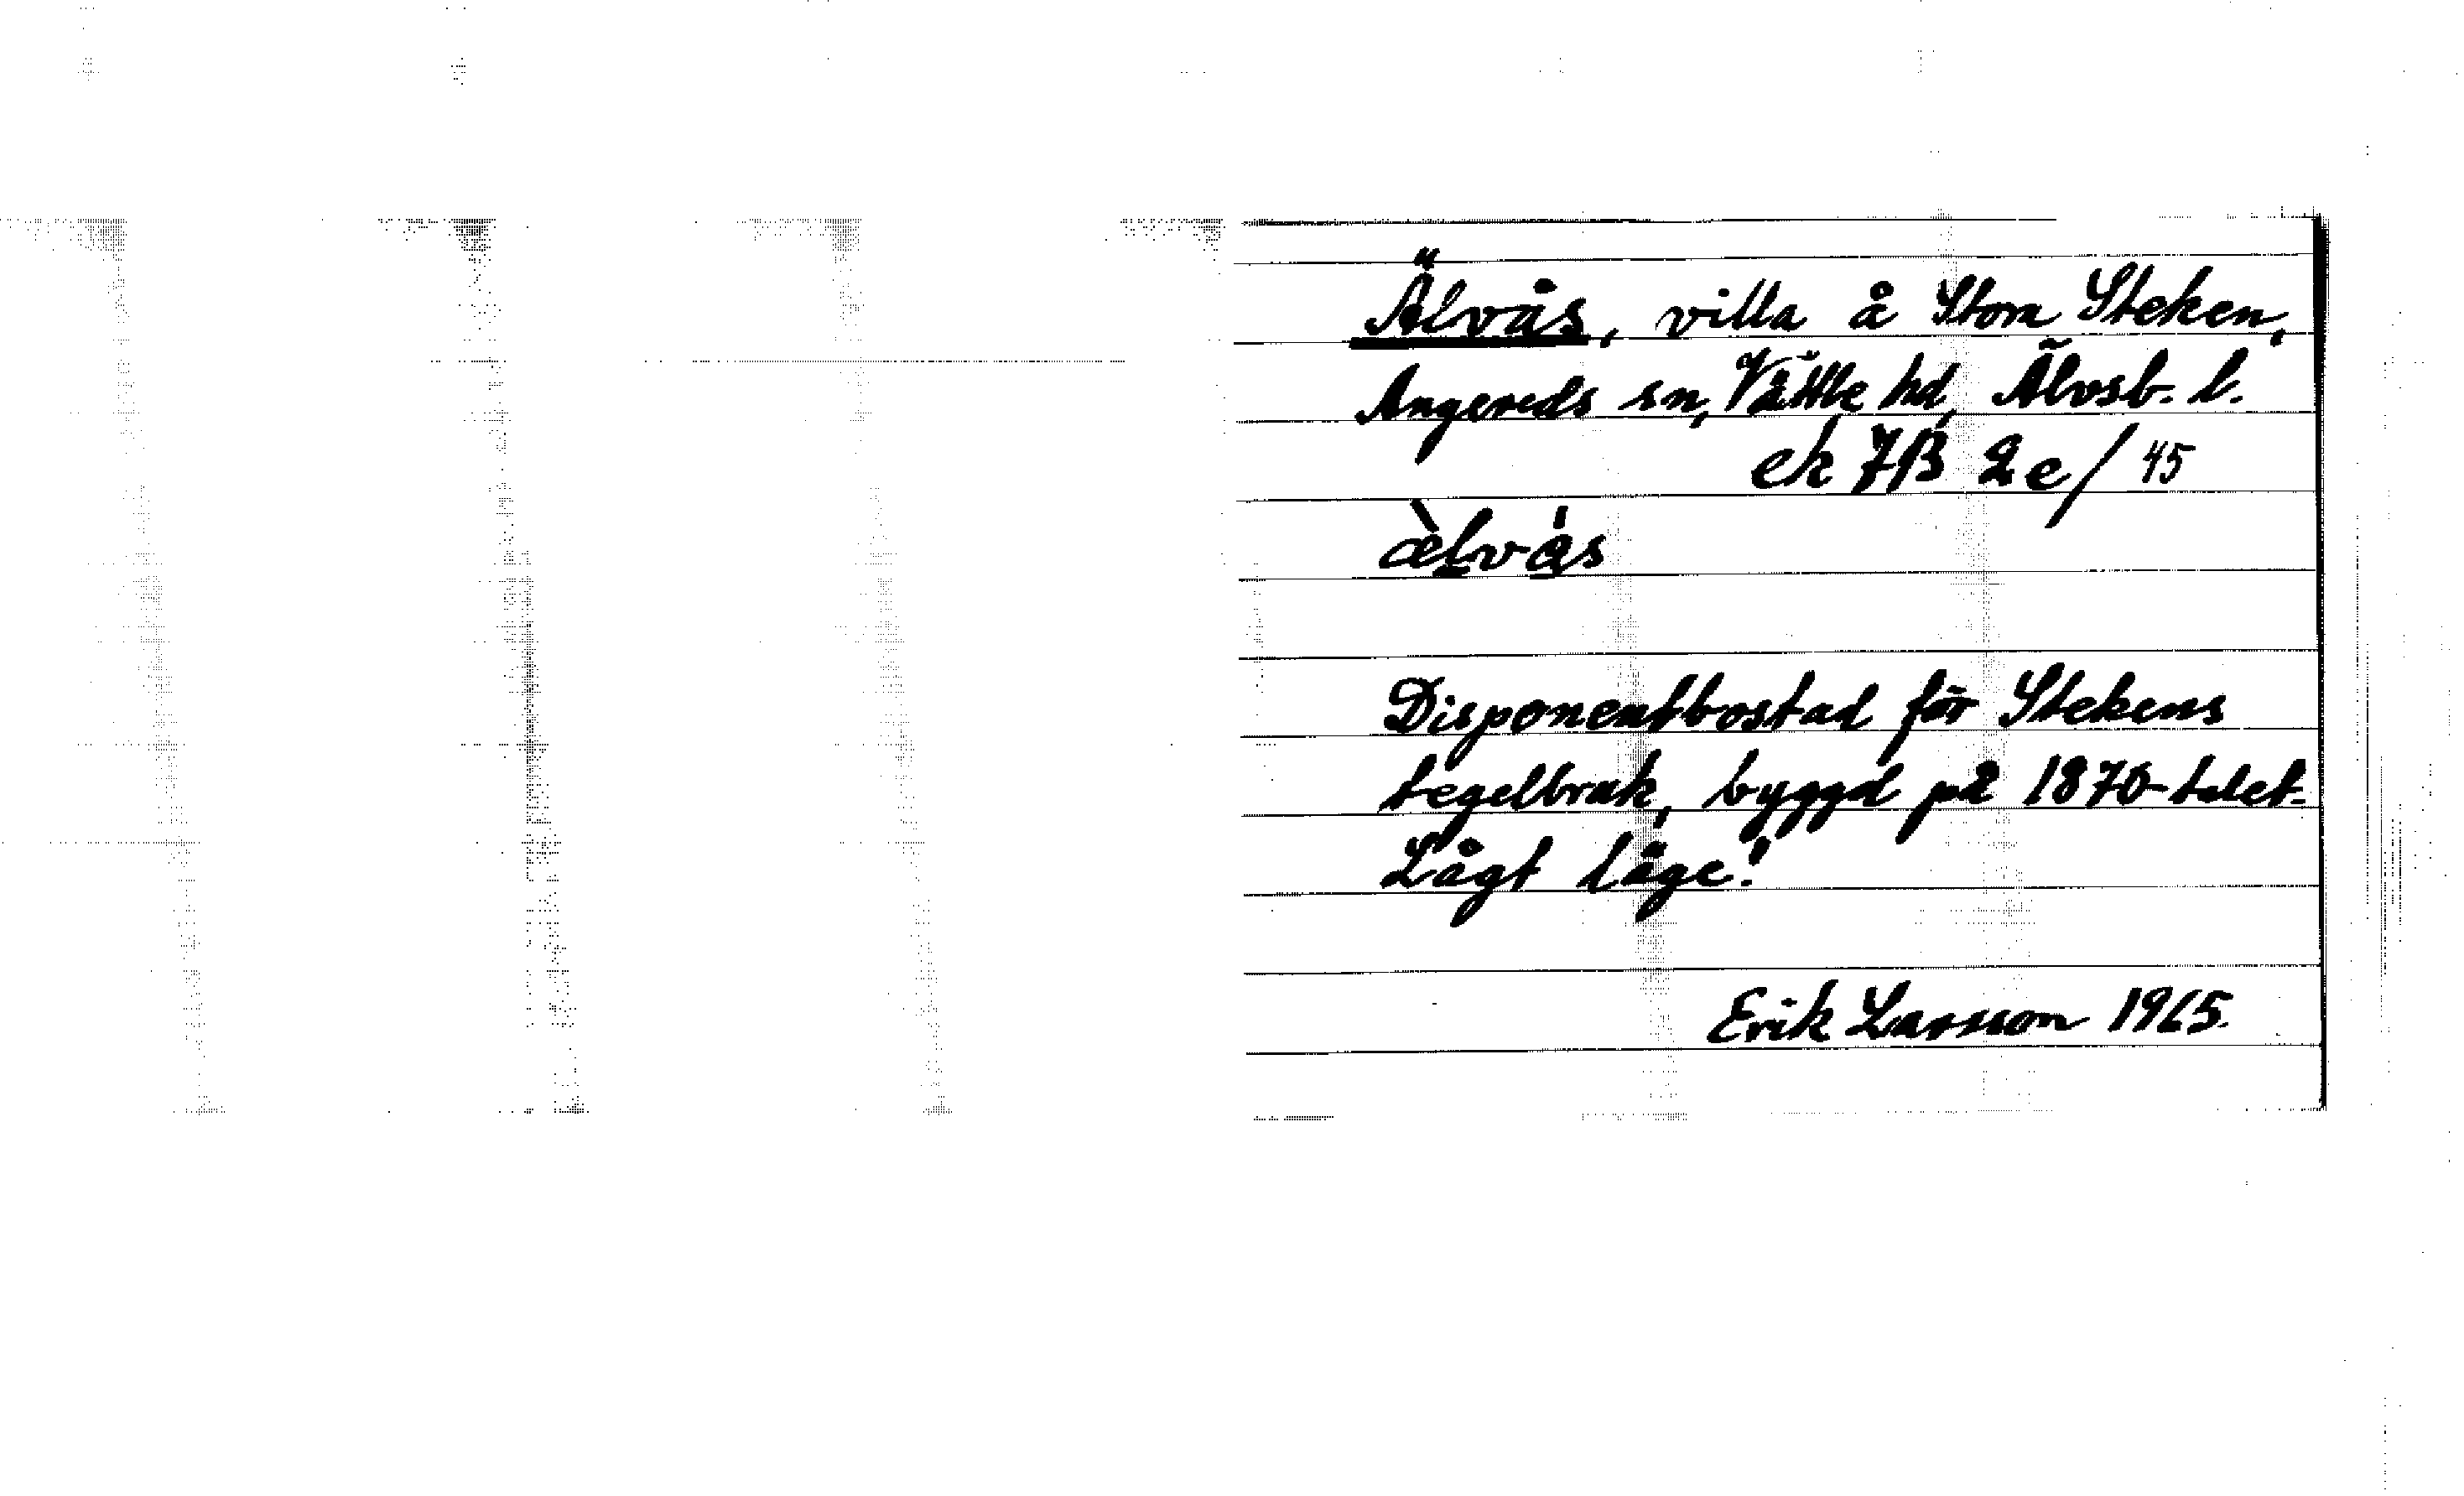 Älvås, villa å Stora Steken,
Angereds sn, Vättle hd, Älvsb. l.
ek 7B 2e/45
æ̀lvås
Disponentbostad för Stekens
tegelbruk, byggd på 1870-talet.
Lågt läge!
Erik Larsson 1965.